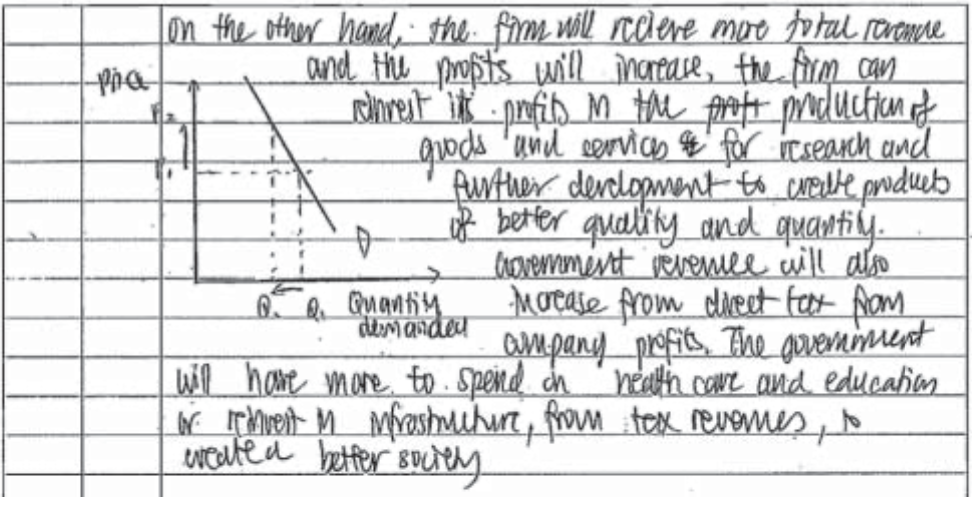 on the other hand, the firm will recieve more total revenue
and the profits will increase, the firm can
Price
reinvest its profits in the profit production of
P2
goods and services & for research and
P1
further development to create products
of better quality and quantity.
D
Government revenue will also
Q2 Q1 Quantity
increase from direct tax from
demanded
company profits. The government
will have more to spend on health care and education
or reinvest in infrastructure, from tax revenues, to
created better society